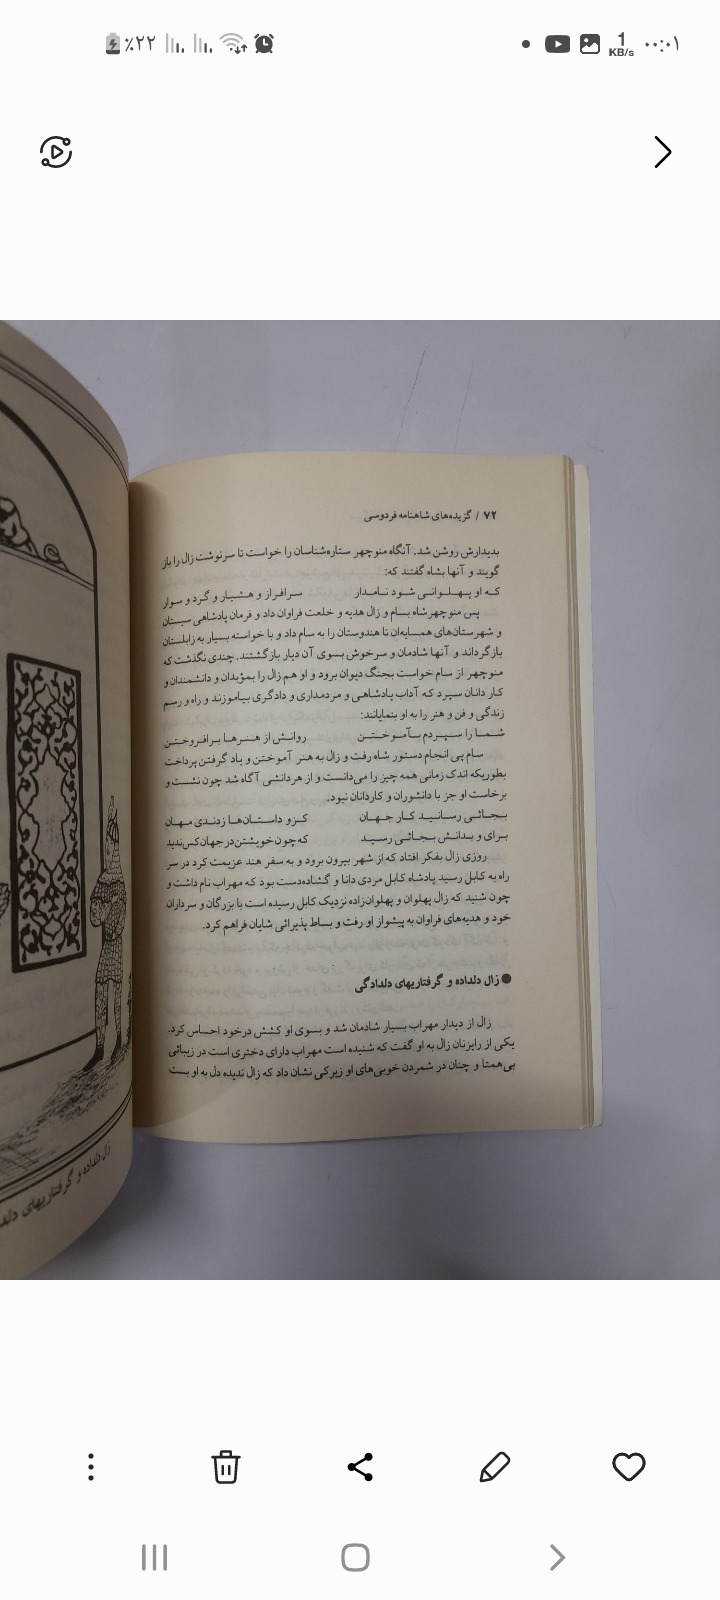 ٪۲۲
1
KB/s
۰۰:۰۱
۷۲ / گزیده‌های شاهنامه فردوسی
بدیدارش روشن شد. آنگاه منوچهر ستاره‌شناسان را خواست تا سرنوشت زال را باز
گویند و آنها بشاه گفتند که:
که او پهلوانی شود نامدار سرافراز و هشیار و گرد و سوار
پس منوچهرشاه بسام و زال هدیه و خلعت فراوان داد و فرمان پادشاهی سیستان
و شهرستان‌های همسایه‌ان تا هندوستان را به سام داد و با خواسته بسیار به زابلستان
بازگرداند و آنها شادمان و سرخوش بسوی آن دیار بازگشتند. چندی نگذشت که
منوچهر از سام خواست بجنگ دیوان برود و او هم زال را بمؤبدان و دانشمندان و
کار دانان سپرد که آداب پادشاهی و مردمداری و دادگری بیاموزند و راه و رسم
زندگی و فن و هنر را به او بنمایانند:
شما را سپردم بآموختن روانش از هنرها برافروختن
سام پی انجام دستور شاه رفت و زال به هنر آموختن و یاد گرفتن پرداخت
بطوریکه اندک زمانی همه چیز را می‌دانست و از هردانشی آگاه شد چون نشست و
برخاست او جز با دانشوران و کاردانان نبود.
بجائی رسانید کار جهان کزو داستان‌ها زدندی مهان
برای و بدانش بجائی رسید که چون خویشتن در جهان کس ندید
روزی زال بفکر افتاد که از شهر بیرون برود و به سفر هند عزیمت کرد در سر
راه به کابل رسید پادشاه کابل مردی دانا و گشاده‌دست بود که مهراب نام داشت و
چون شنید که زال پهلوان و پهلوان‌زاده نزدیک کابل رسیده است با بزرگان و سرداران
خود و هدیه‌های فراوان به پیشواز او رفت و بساط پذیرائی شایان فراهم کرد.
● زال دلداده و گرفتاریهای دلدادگی
زال از دیدار مهراب بسیار شادمان شد و بسوی او کشش درخود احساس کرد.
یکی از رایزنان زال به او گفت که شنیده است مهراب دارای دختری است در زیبائی
بی‌همتا و چنان در شمردن خوبی‌های او زیرکی نشان داد که زال ندیده دل به او بست
زال دلداده و گرفتاریهای